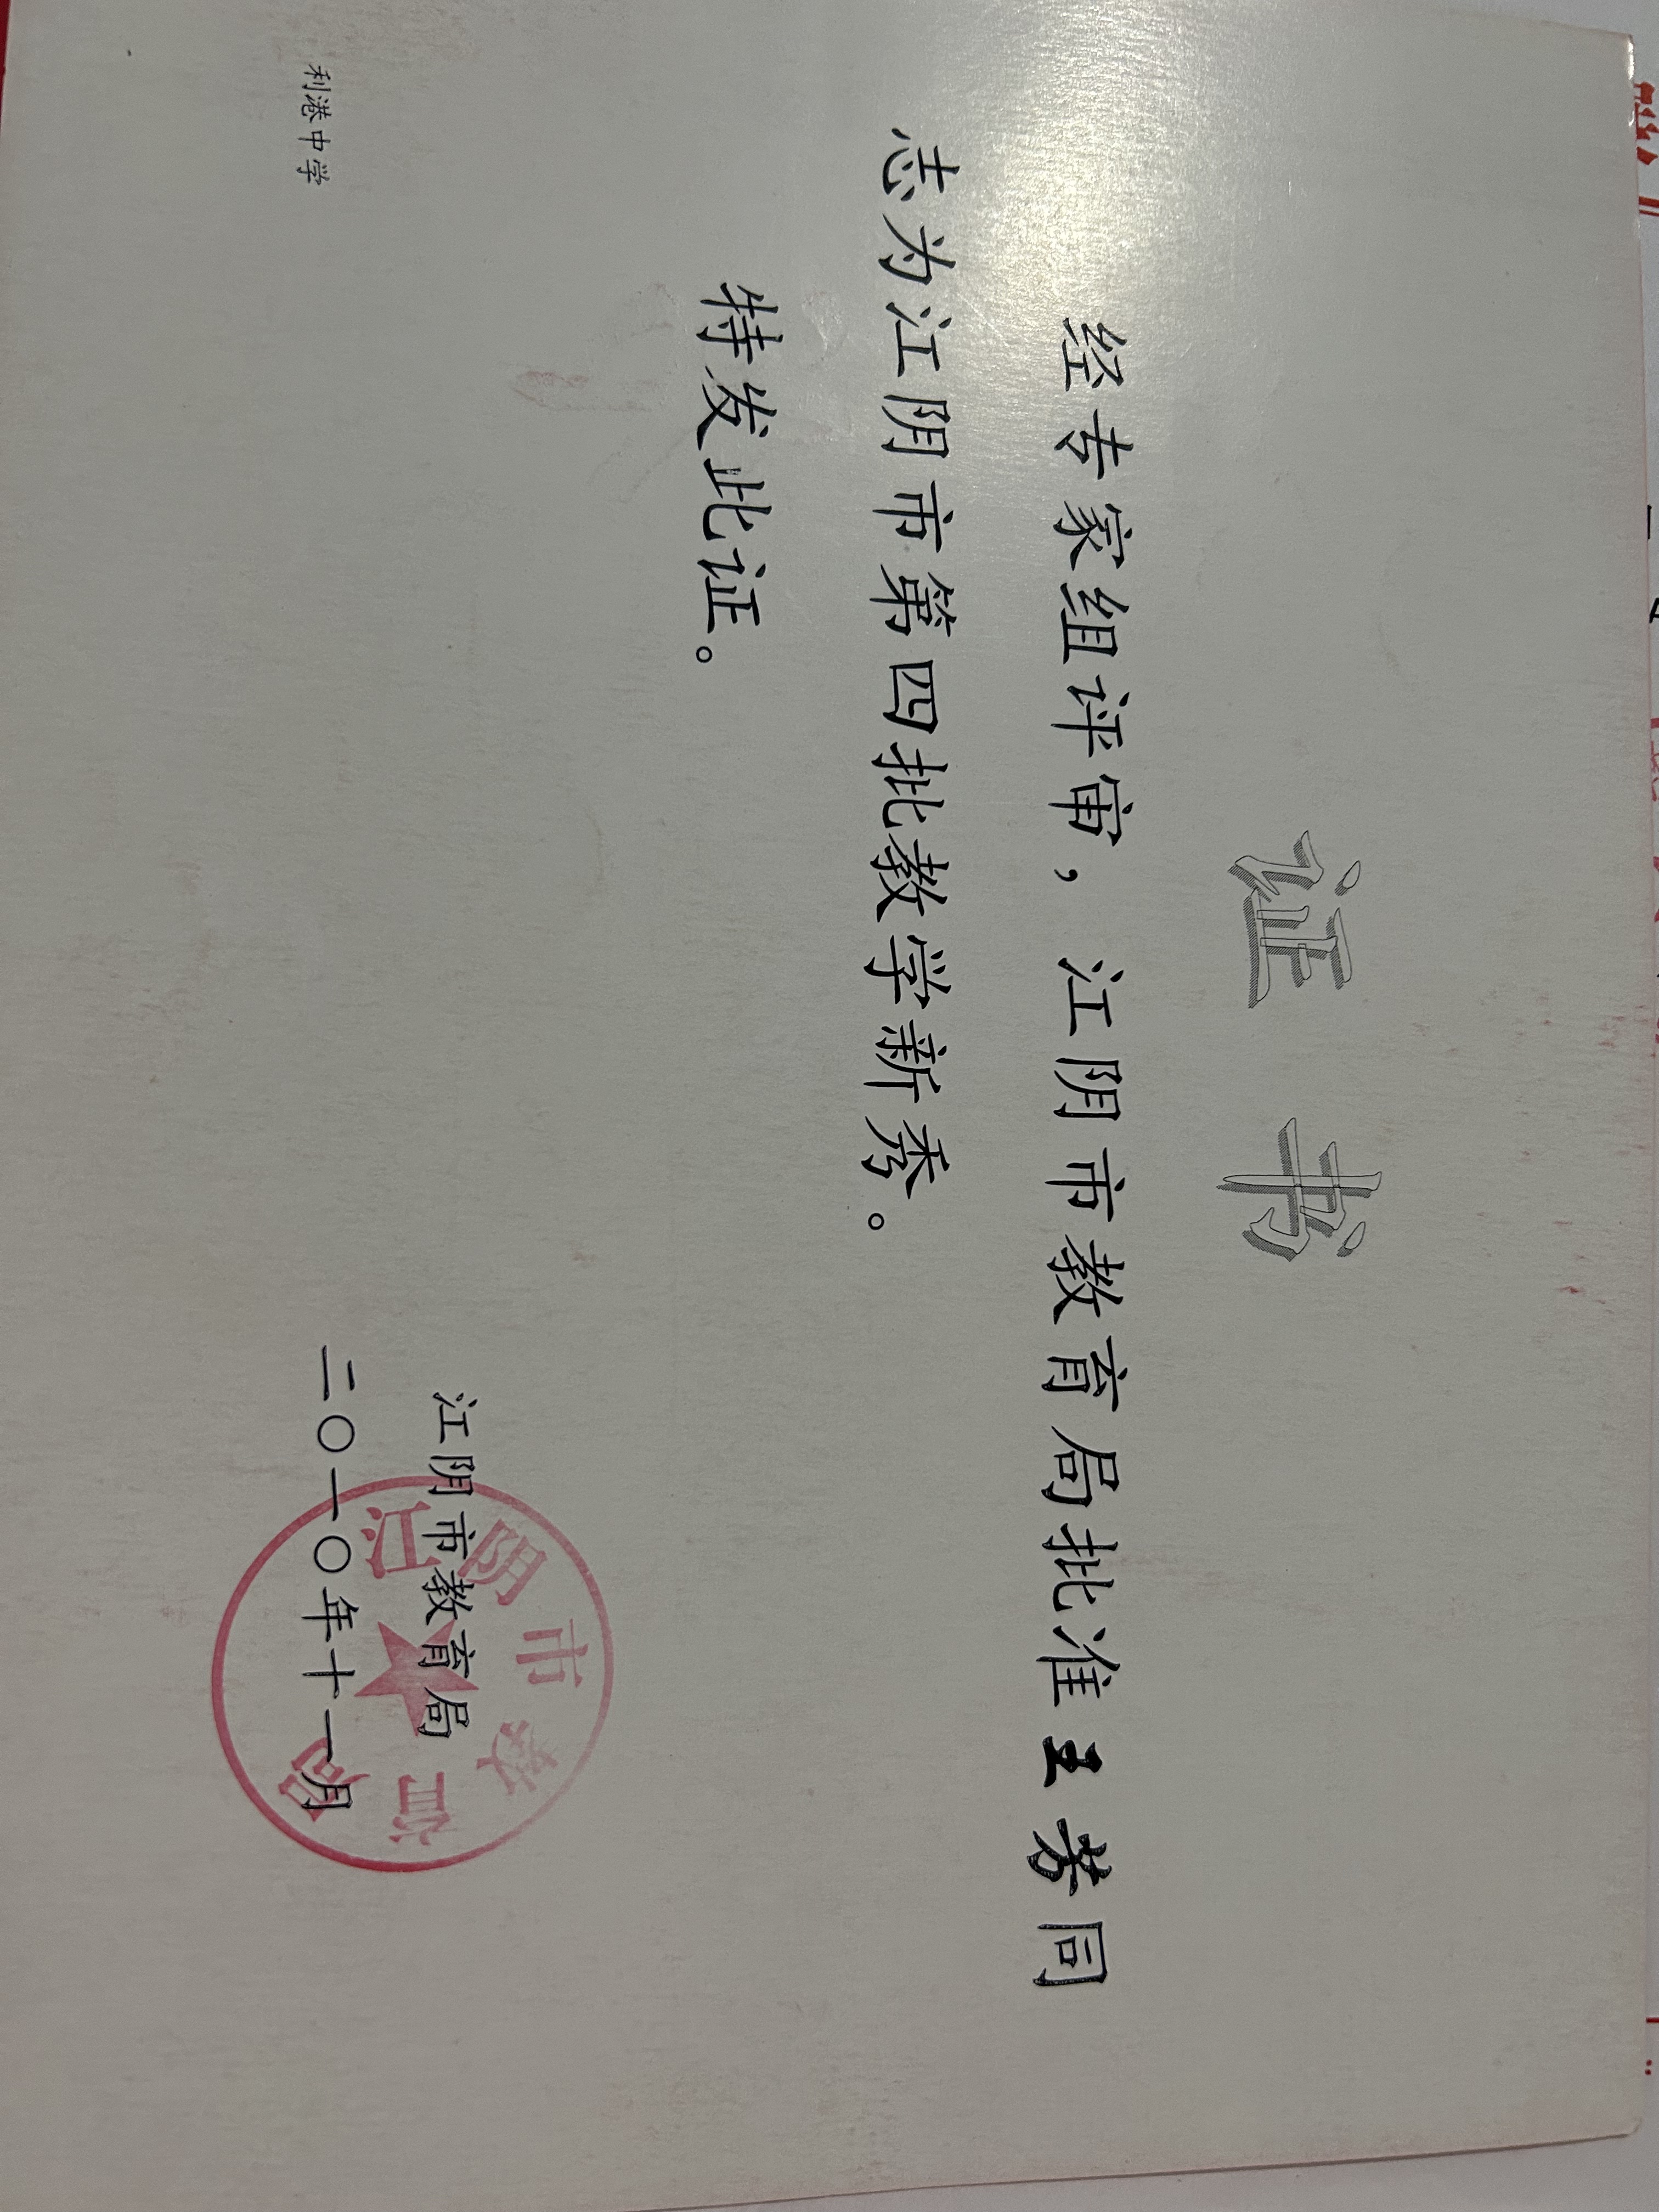 证 书
经专家组评审，江阴市教育局批准王芳同
志为江阴市第四批教学新秀。
特发此证。
江阴市教育局
二〇一〇年十一月
利港中学
江阴市教育局